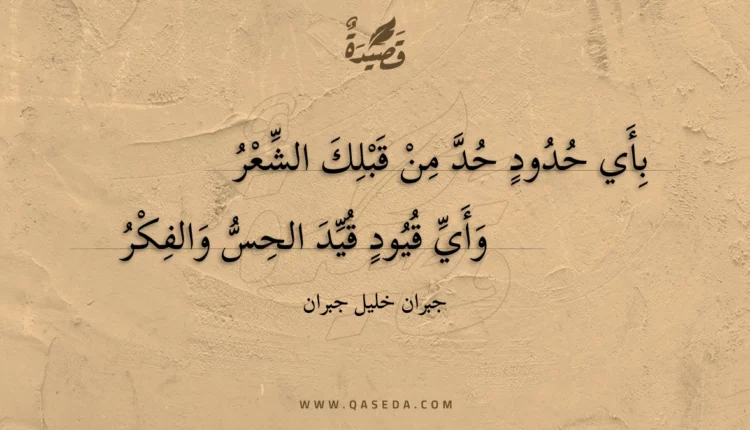 قَصِيدَةٌ
بِأَي حُدُودٍ حُدَّ مِنْ قَبْلِكَ الشِّعْرُ
وَأَيِّ قُيُودٍ قُيِّدَ الحِسُّ وَالفِكْرُ
جبران خليل جبران
WWW.QASEDA.COM